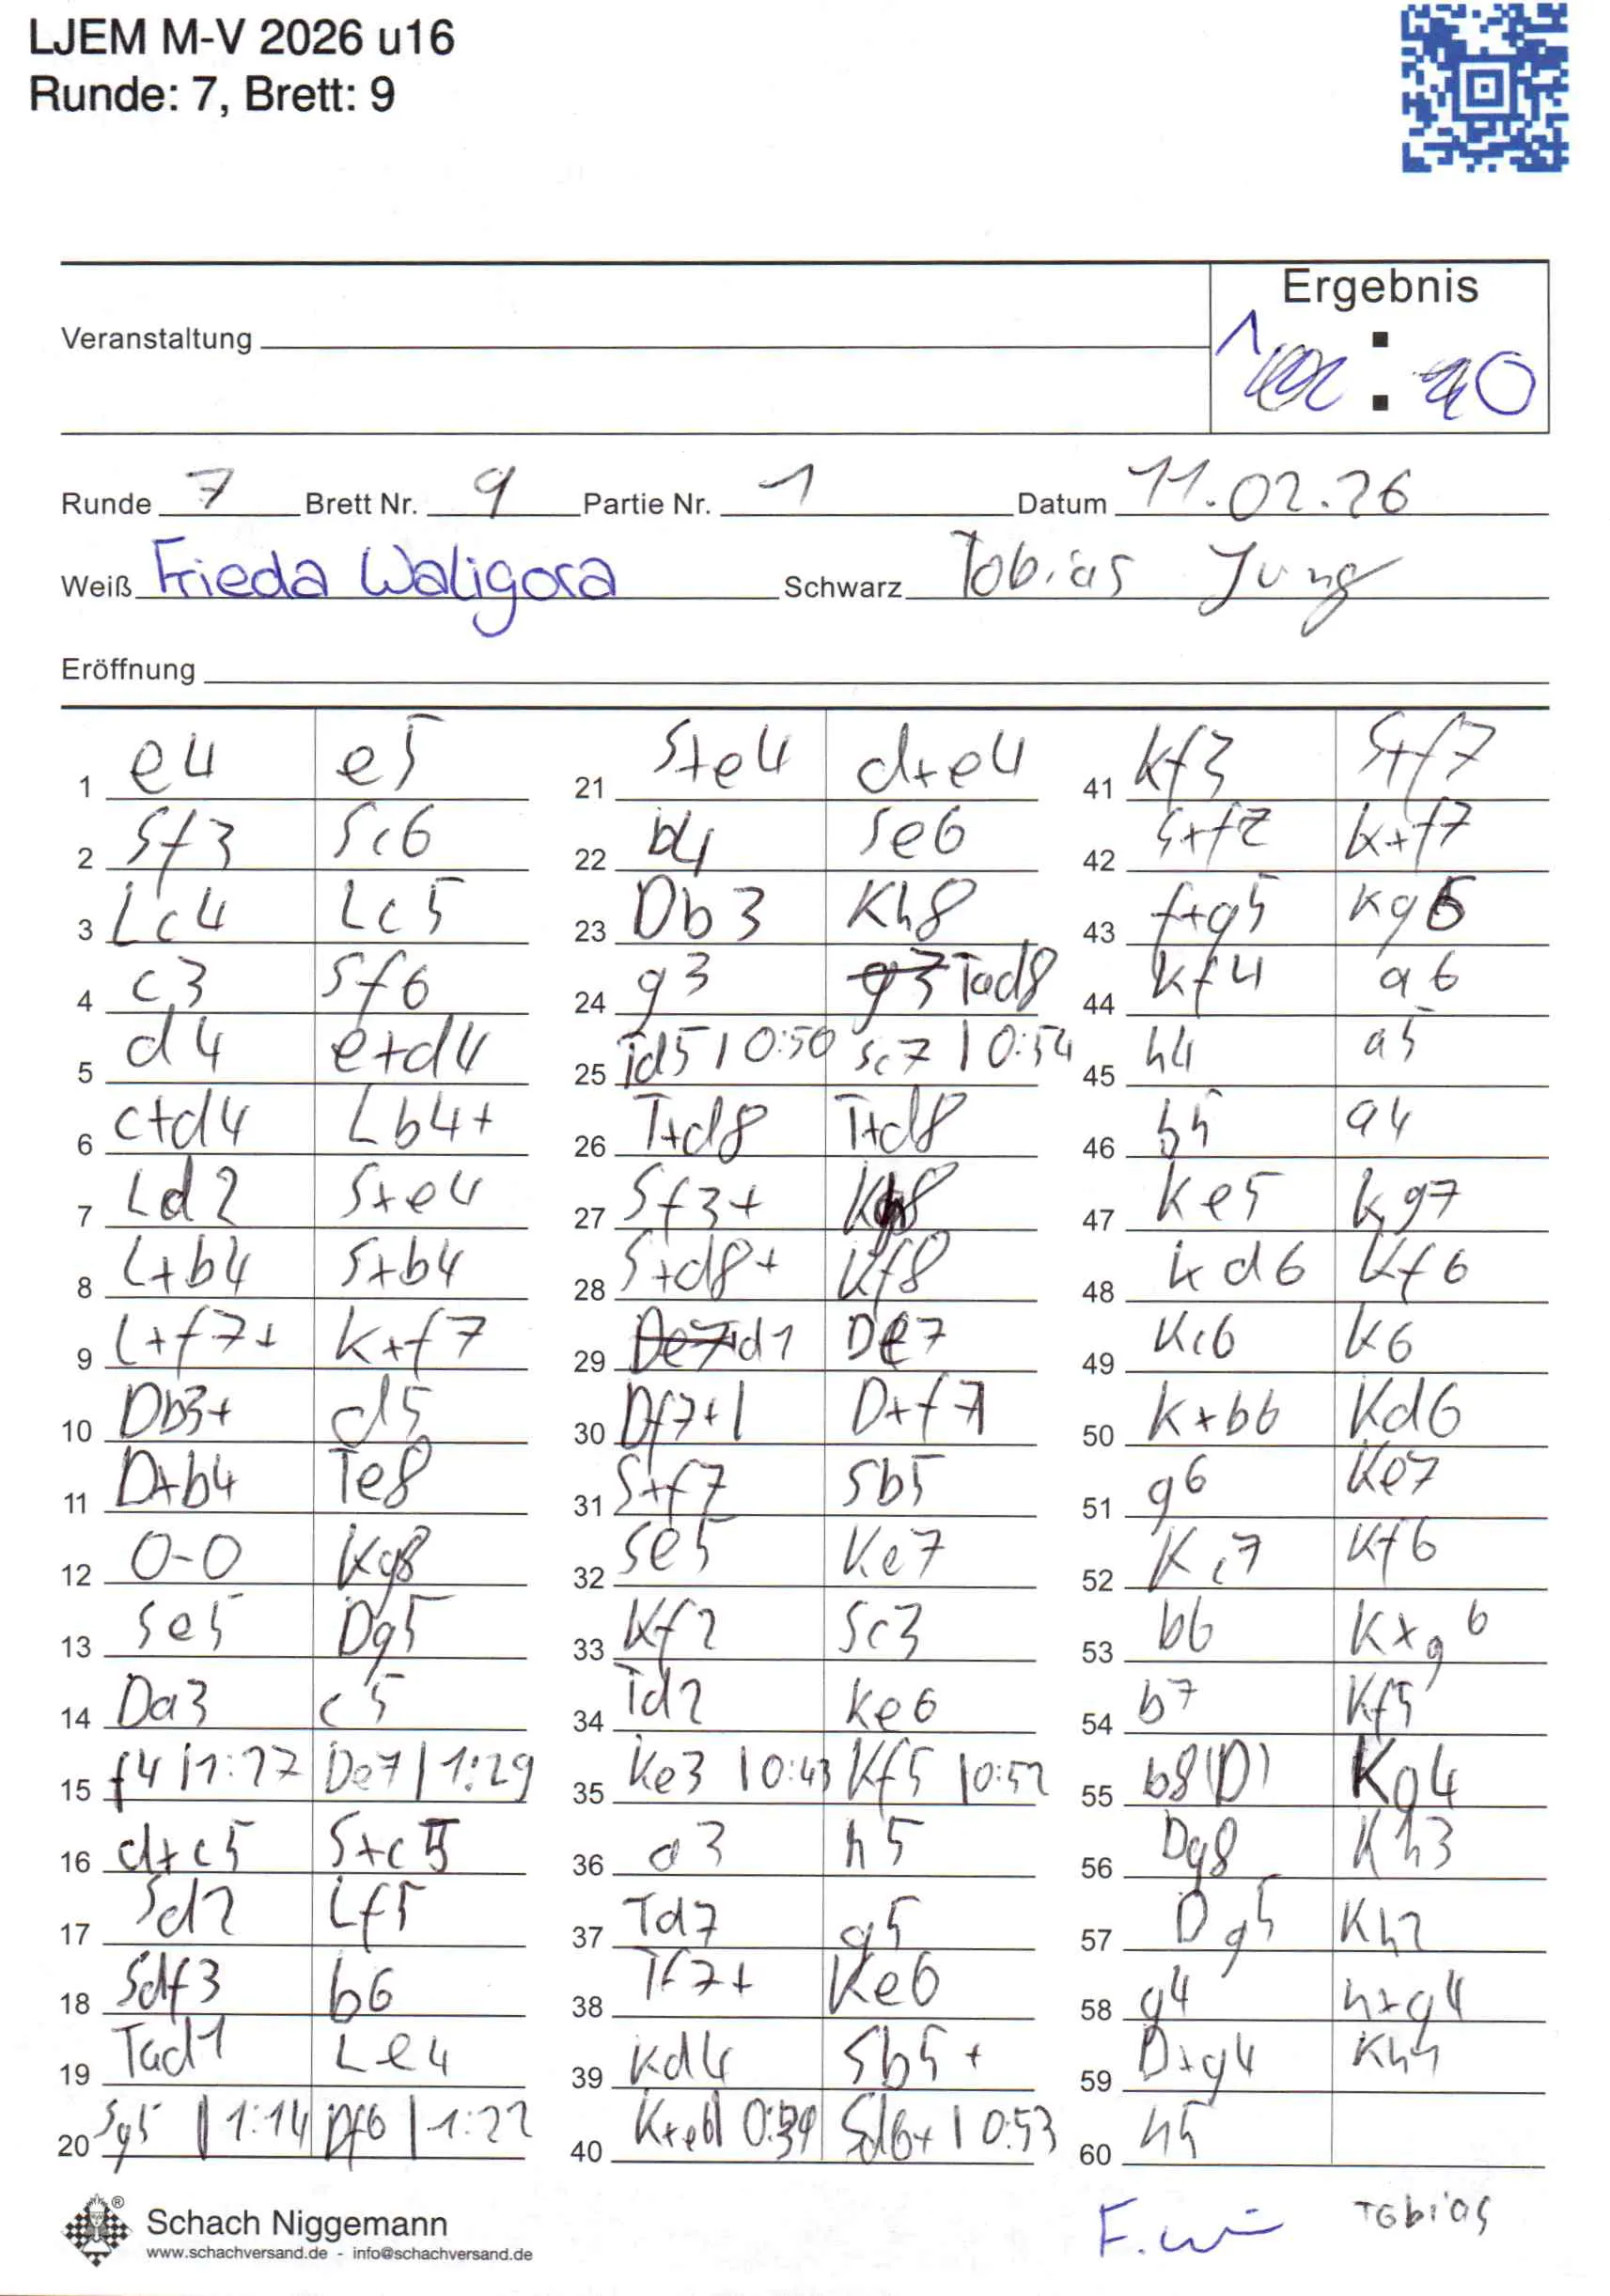 LJEM M-V 2026 u16
Runde: 7, Brett: 9
Ergebnis
Veranstaltung
1 : 0
Runde 7 Brett Nr. 9 Partie Nr. 1 Datum 11.02.26
Weiß Frieda Waligora Schwarz Tobias Jung
Eröffnung
1 e4 e5
2 Sf3 Sc6
3 Lc4 Lc5
4 c3 Sf6
5 d4 e+d4
6 c+d4 Lb4+
7 Ld2 S+e4
8 L+b4 S+b4
9 L+f7+ K+f7
10 Db3+ d5
11 D+b4 Te8
12 0-0 Kg8
13 Se5 Dg5
14 Da3 c5
15 f4 | 1:27 De7 | 1:29
16 d+c5 S+c5
17 Sd2 Lf5
18 Sdf3 b6
19 Tad1 Le4
20 Sg5 | 1:14 Df6 | 1:22
21 S+e4 d+e4
22 b4 Se6
23 Db3 Kh8
24 g3 Tad8
25 Td5 | 0:50 Sc7 | 0:54
26 T+d8 T+d8
27 Sf3+ Kg8
28 S+d8+ Kf8
29 Td1 De7
30 Df7+ D+f7
31 S+f7 Sb5
32 Se5 Ke7
33 Kf2 Sc3
34 Td2 Ke6
35 Ke3 | 0:43 Kf5 | 0:52
36 a3 h5
37 Td7 g5
38 Tf7+ Ke6
39 Kd4 Sb5+
40 K+e4 | 0:39 Sd6+ | 0:53
41 Kf3 S+f7
42 S+f7 K+f7
43 f+g5 Kg6
44 Kf4 a6
45 h4 a5
46 b5 a4
47 Ke5 Kg7
48 Kd6 Kf6
49 Kc6 K6
50 K+b6 Kd6
51 g6 Ke7
52 Kc7 Kf6
53 b6 Kxg6
54 b7 Kf5
55 b8(D) Kg4
56 Dg8 Kh3
57 Dg5 Kh2
58 g4 h+g4
59 D+g4 Kh1
60 h5
Schach Niggemann
www.schachversand.de - info@schachversand.de
Tobias